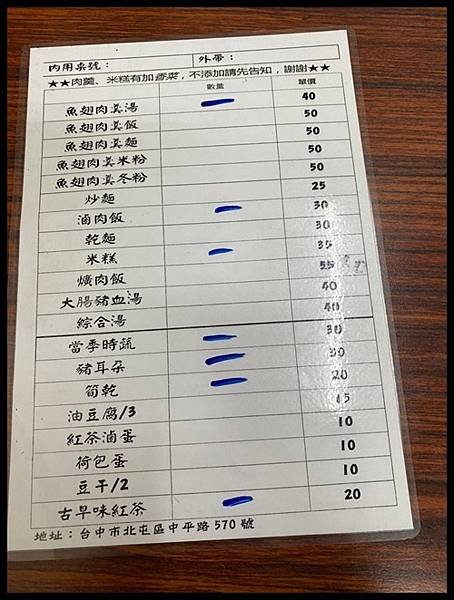 內用桌號： 外帶：
★★肉羹、米糕有加香菜，不添加請先告知，謝謝★★
數量 單價
魚翅肉羹湯 40
魚翅肉羹飯 50
魚翅肉羹麵 50
魚翅肉羹米粉 50
魚翅肉羹冬粉 50
炒麵 25
滷肉飯 30
乾麵 30
米糕 35
爌肉飯 55
大腸豬血湯 40
綜合湯 40
當季時蔬 30
豬耳朵 30
筍乾 20
油豆腐/3 15
紅茶滷蛋 10
荷包蛋 10
豆干/2 10
古早味紅茶 20
地址：台中市北屯區中平路570號